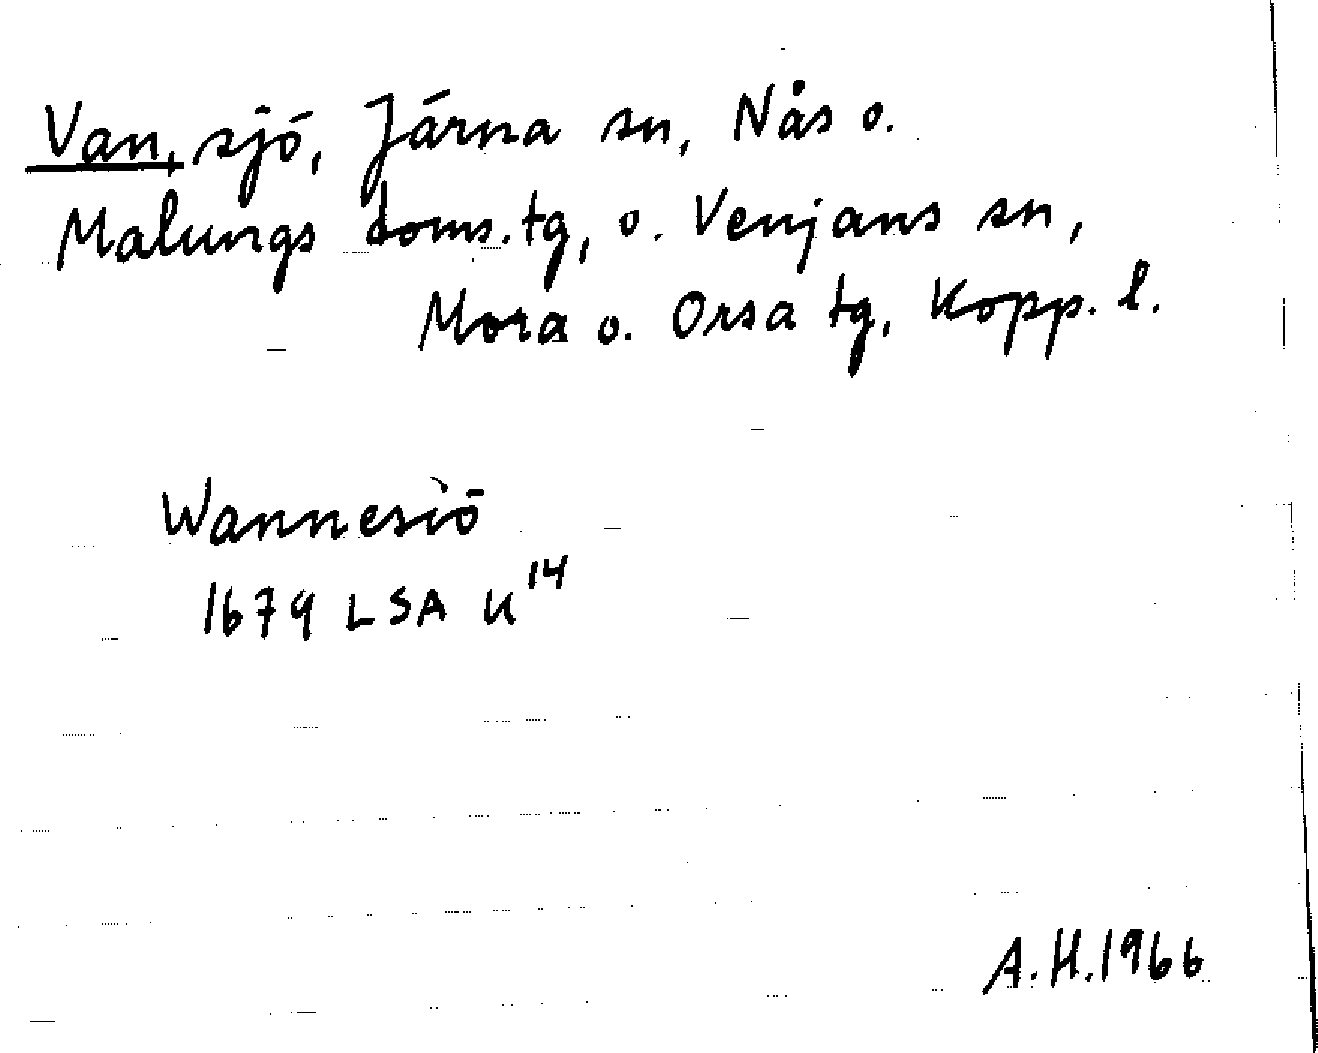 Van, sjö, Järna sn, Nås o.
Malungs doms.tg, o. Venjans sn,
Mora o. Orsa tg, Kopp. l.
Wannesiö
1679 LSA U¹⁴
A.H.1966